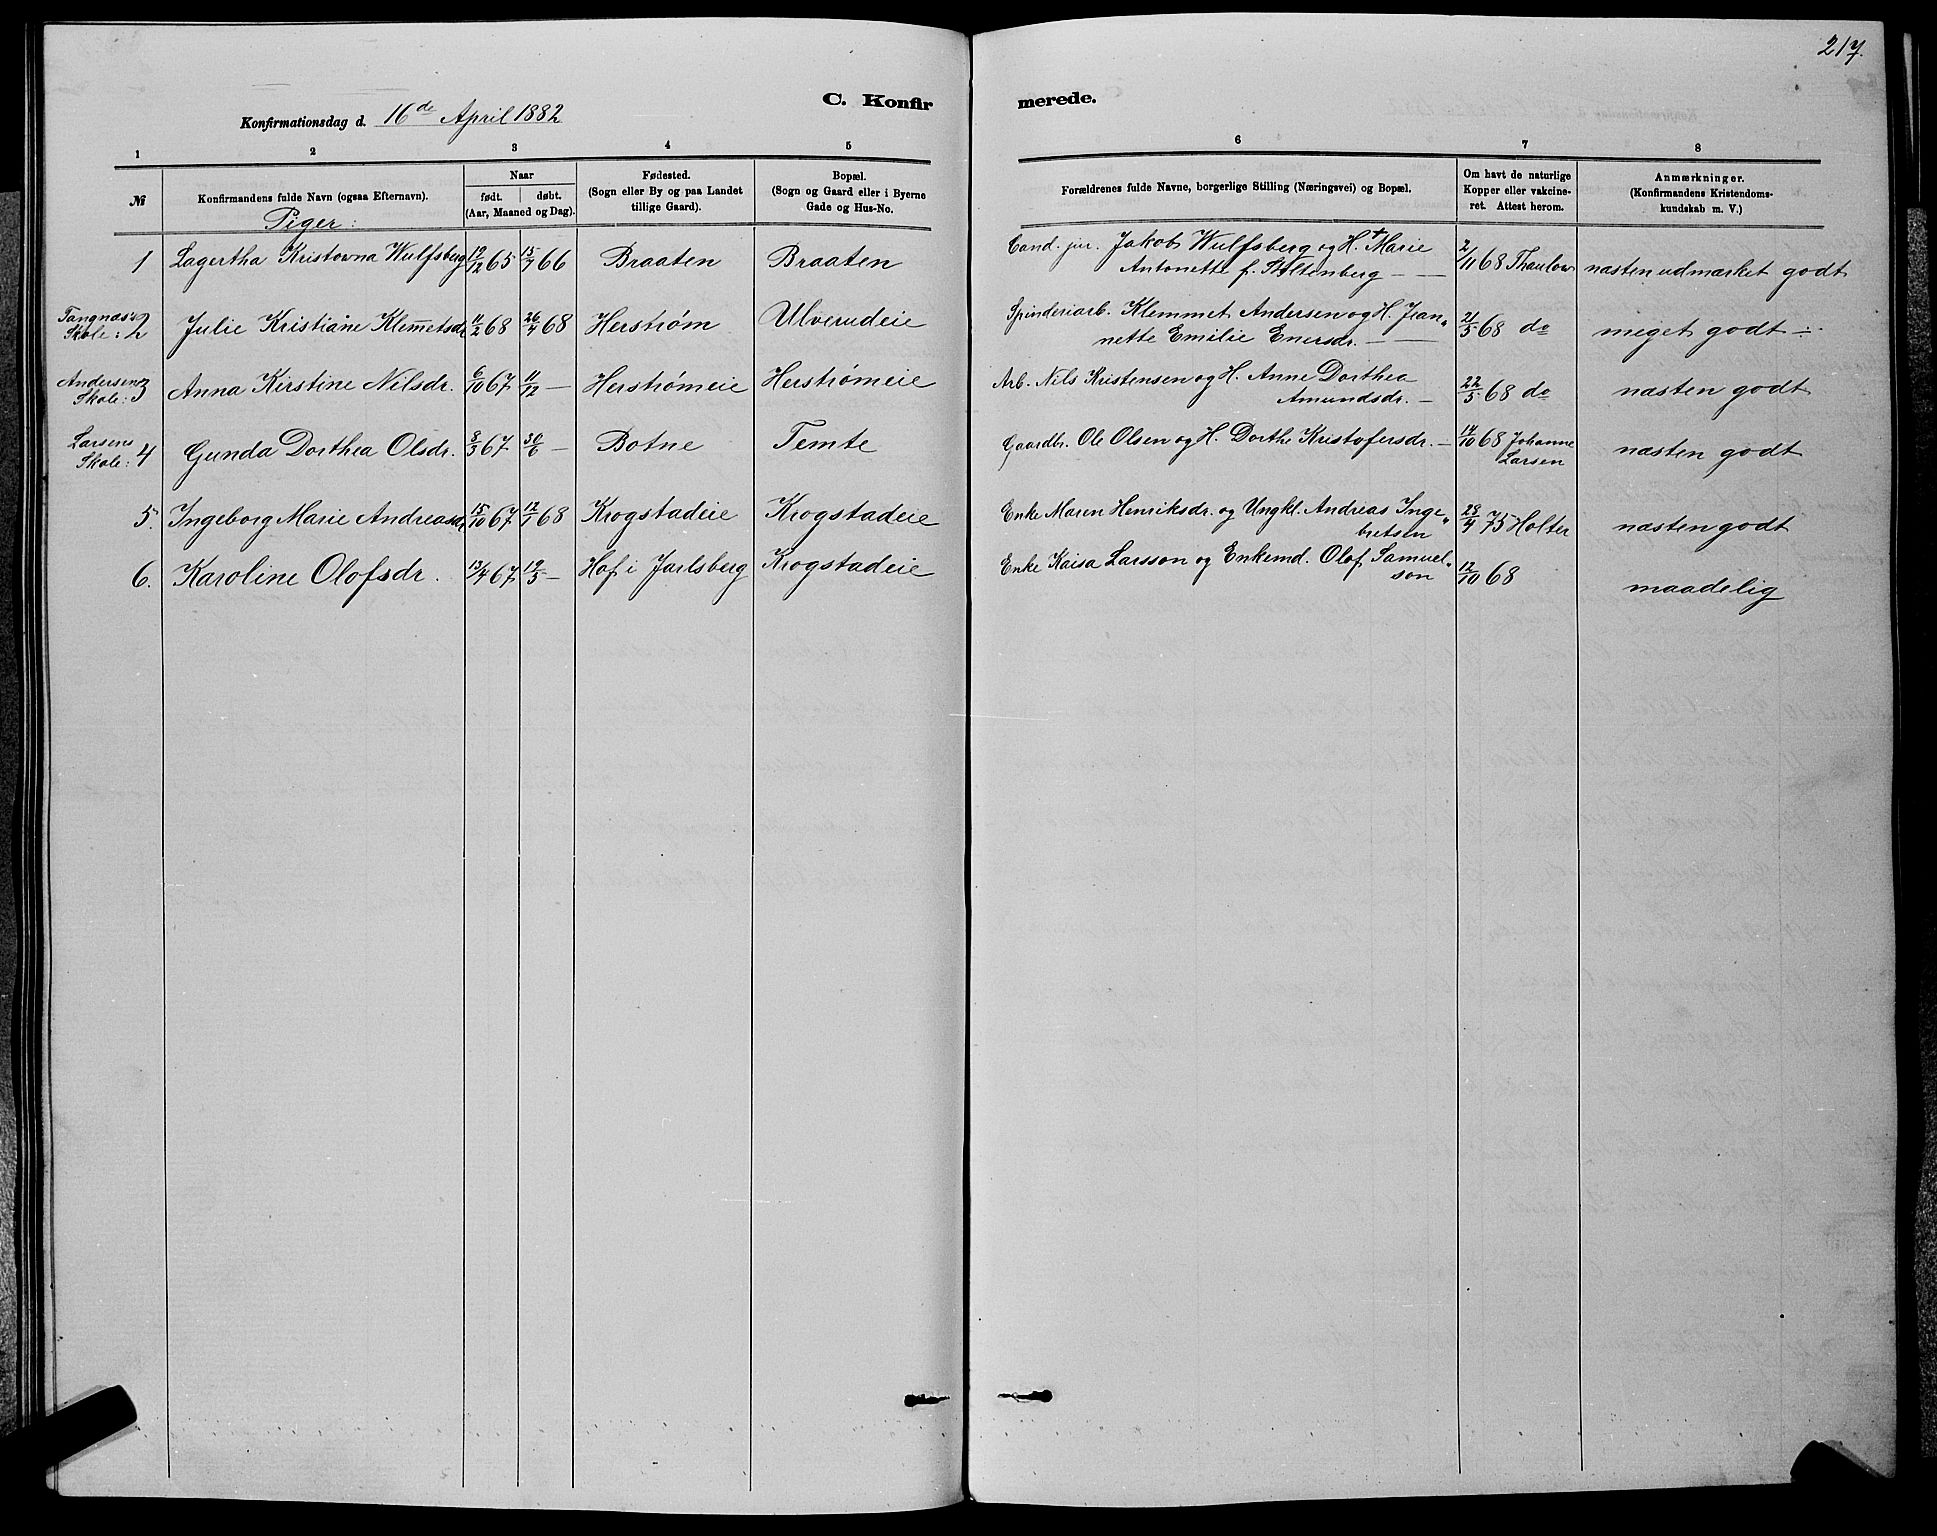 217.
C. Konfirmerede.
Konfirmationsdag d. 16de April 1882
1 2 3 4 5 6 7 8
№ Konfirmandens fulde Navn (ogsaa Efternavn). Naar født. døbt. (Aar, Maaned og Dag). Fødested. (Sogn eller By og paa Landet tillige Gaard). Bopæl. (Sogn og Gaard eller i Byerne Gade og Hus-No. Forældrenes fulde Navne, borgerlige Stilling (Næringsvei) og Bopæl. Om havt de naturlige Kopper eller vakcineret. Attest herom. Anmærkninger. (Konfirmandens Kristendomskundskab m. V.)
Piger:
1 Lagertha Kristovna Wulfsberg 19/12 65 15/7 66 Braaten Braaten Cand. jur. Jakob Wulfsberg og H. + Marie Antonette f. Stoltenberg — — 2/11 68 Thaulow næsten udmærket godt
Tangnæs's Skole: 2 Julie Kristiane Klemmetsdr. 11/2 68 26/4 68 Herstrøm Ulverudeie Spinderiarb. Klemmet Andersen og H. Jeannette Emilie Enersdr. — — 21/5 68 do meget godt
Andersens Skole: 3 Anna Kirstine Nilsdr. 6/10 67 11/12 — Herstrømeie Herstrømeie Arb. Nils Kristensen og H. Anne Dorthea Amundsdr. — 22/5 68 do næsten godt
Larsens Skole: 4 Gunda Dorthea Olsdr. 8/3 67 30/6 — Botne Temte Gaardbr. Ole Olsen og H. Dorthe Kristofersdr. — 14/10 68 Johanne Larsen næsten godt
5. Ingeborg Marie Andreasdr 15/10 67 12/1 68 Krogstadeie Krogstadeie Enke Maren Henriksdr. og Ungkl. Andreas Ingebretsen 28/4 75 Holter næsten godt
6. Karoline Olofsdr. 13/4 67 19/5 — Hof i Jarlsberg Krogstadeie Enke Kaisa Larsson og Enkemd. Olof Samuelson 12/10 68 maadelig